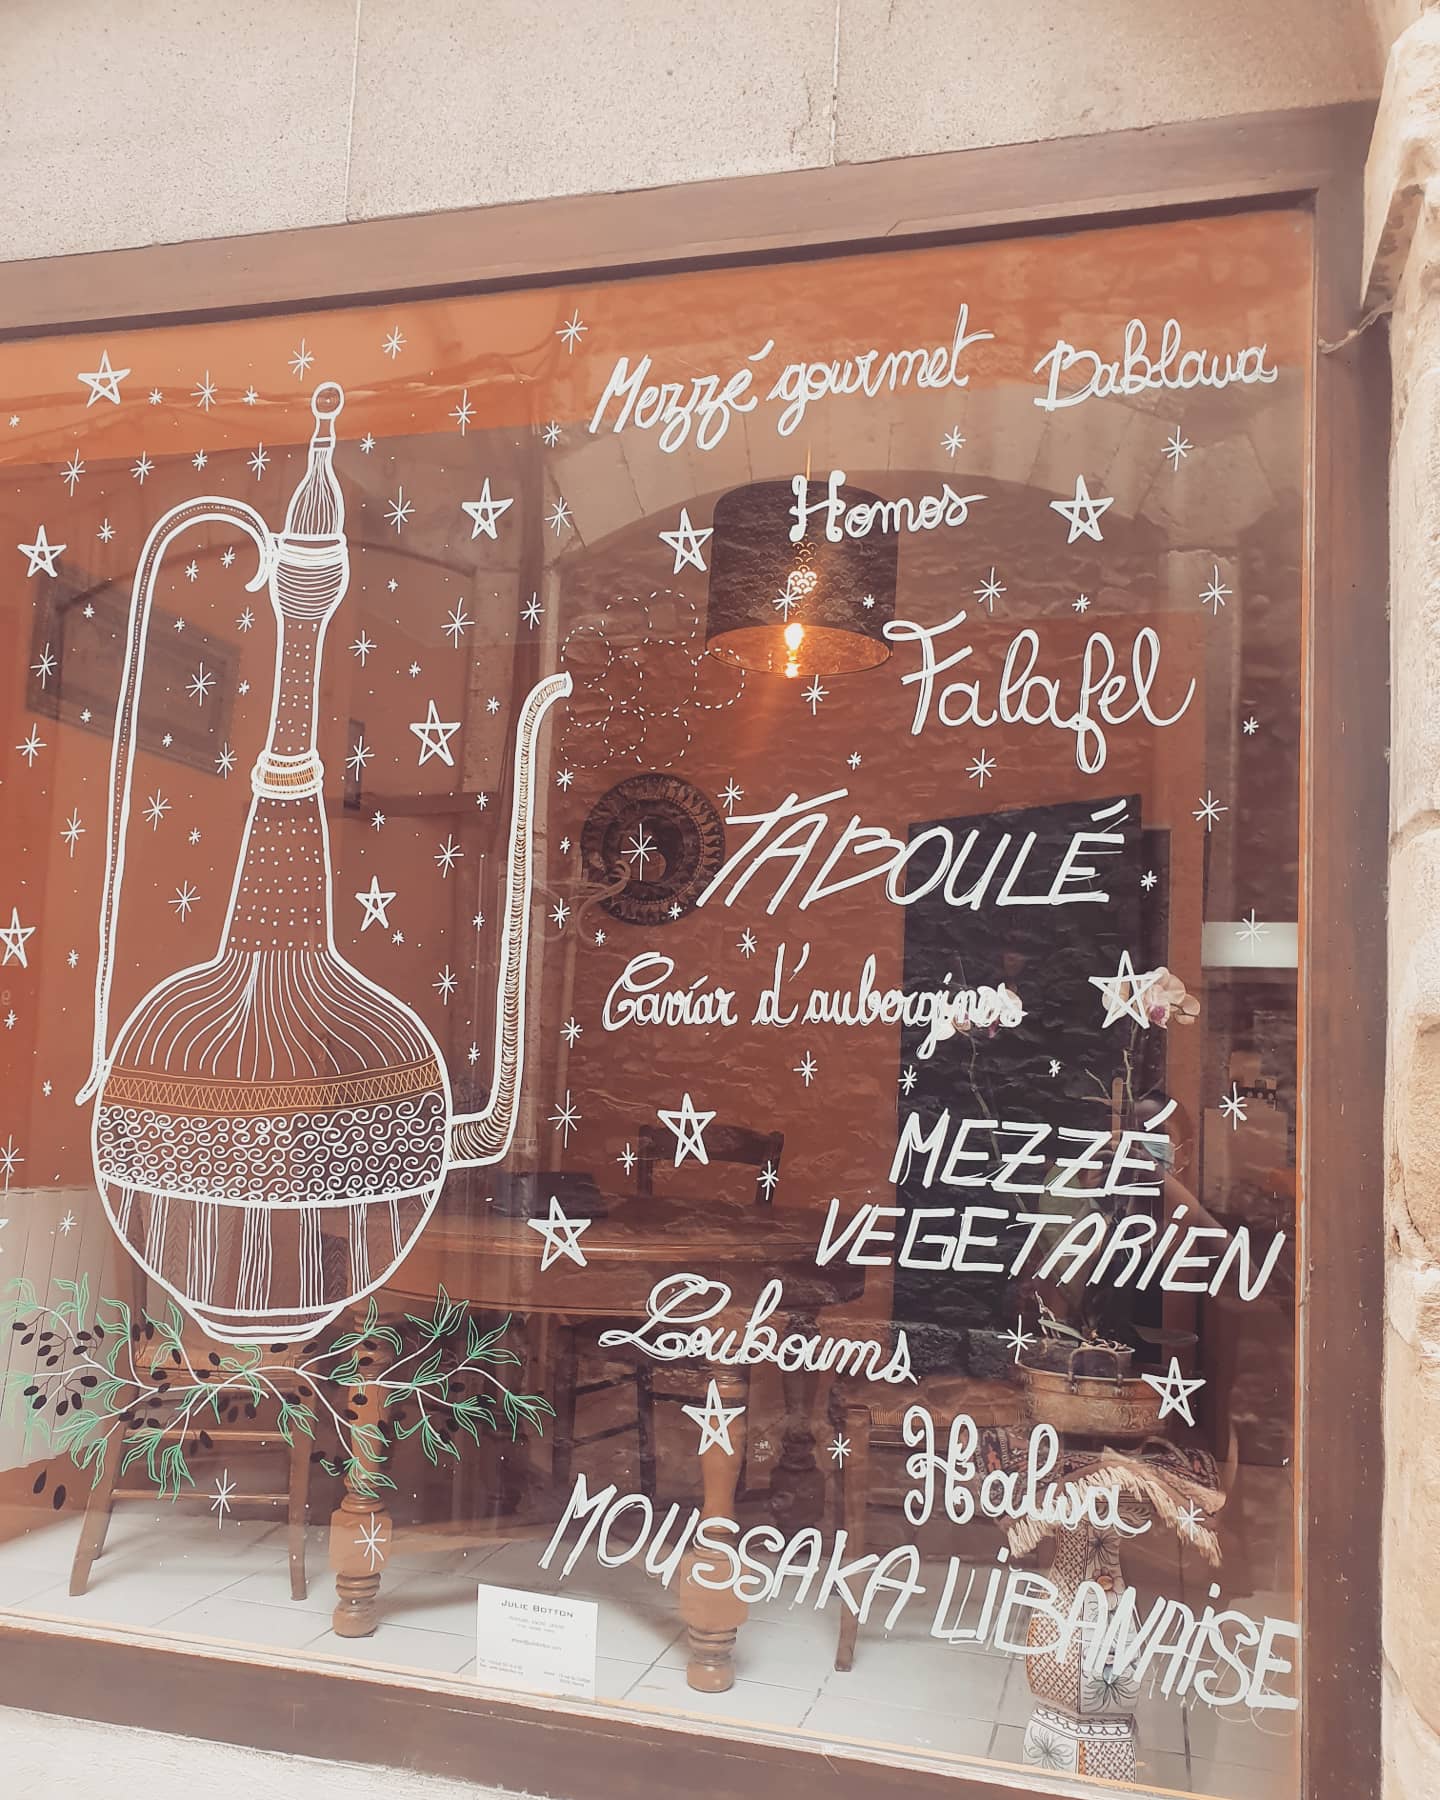 Mezzé gourmet
Bablawa
Homos
Falafel
TABOULÉ
Caviar d'aubergines
MEZZÉ
VEGETARIEN
Louboums
Halwa
MOUSSAKA LIBANAISE
JULIE BOTTON